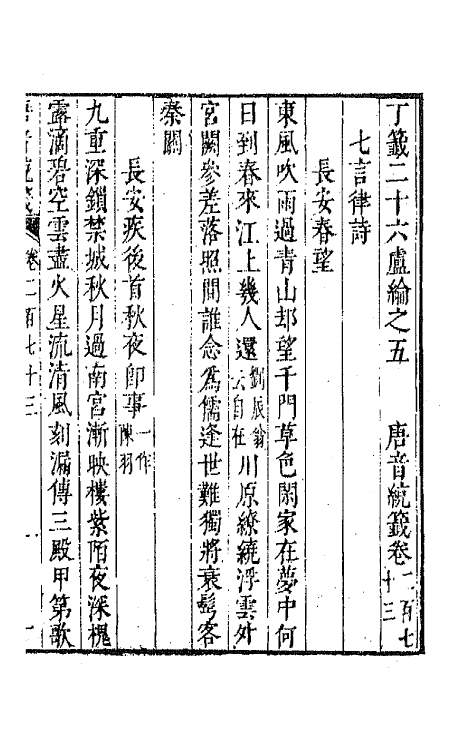 丁籤二十六盧綸之五　唐音統籤卷二百七十三
七言律詩
長安春望
東風吹雨過青山却望千門草色閑家在夢中何
日到春來江上幾人還劉辰翁云自在川原繚繞浮雲外
宮闕參差落照間誰念爲儒逢世難獨將衰鬢客
秦關
長安疾後首秋夜卽事一作陳羽
九重深鎖禁城秋月過南宮漸映樓紫陌夜深槐
露滴碧空雲盡火星流清風刻漏傳三殿甲第歌
唐音統籤　卷二百七十三　一